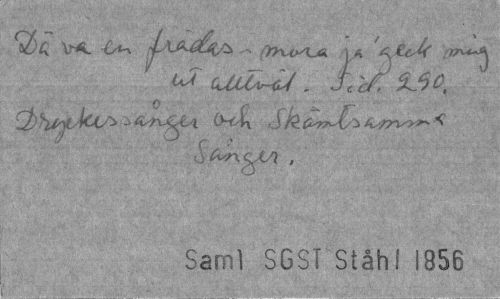 Dä va en frädas-mora ja' geck mig
ut alltväl. Sid. 290.
Dryckessånger och Skämtsamma
Sånger.
Saml SGST Ståhl 1856